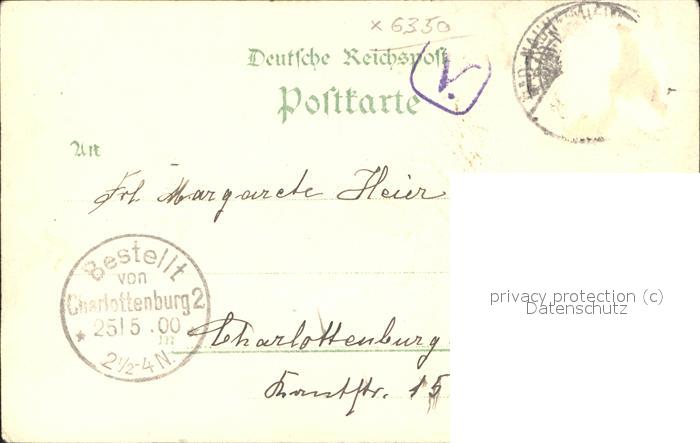 x 6350
Deutsche Reichspost
V.
Postkarte
BAD-NAUHEIM
An
Frl. Margarete Heier
Bestellt
von
Charlottenburg 2
* 25/5.00
2½-4 N.
in Charlottenburg
Kantstr. 15
privacy protection (c)
Datenschutz